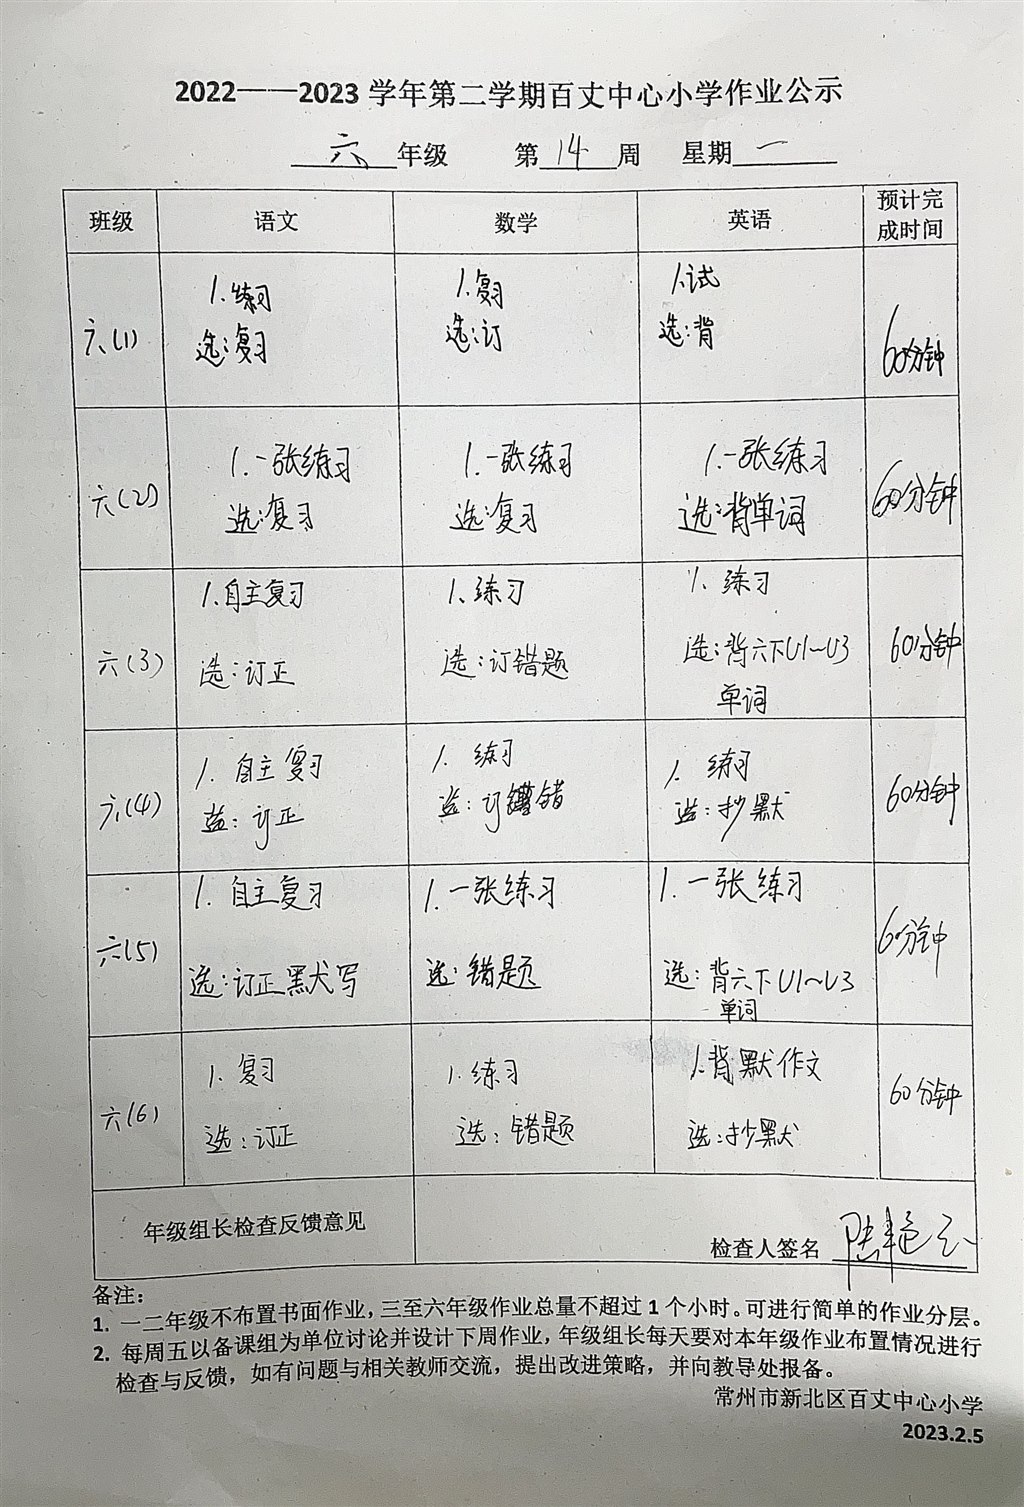 2022——2023 学年第二学期百丈中心小学作业公示
六 年级 第 14 周 星期 一
班级 语文 数学 英语 预计完成时间
六(1)
1.练习
选:复习
1.复习
选:订
1.试
选:背
60分钟
六(2)
1.一张练习
选:复习
1.一张练习
选:复习
1.一张练习
选:背单词
60分钟
六(3)
1.自主复习
选:订正
1、练习
选:订错题
1、练习
选:背六下U1~U3
单词
60分钟
六(4)
1. 自主复习
选:订正
1. 练习
选:订错
1. 练习
选:抄默
60分钟
六(5)
1. 自主复习
选:订正默写
1. 一张练习
选:错题
1. 一张练习
选:背六下U1~U3
单词
60分钟
六(6)
1. 复习
选:订正
1. 练习
选:错题
1.背默作文
选:抄默
60分钟
年级组长检查反馈意见
检查人签名
备注:
1. 一二年级不布置书面作业,三至六年级作业总量不超过 1 个小时。可进行简单的作业分层。
2. 每周五以备课组为单位讨论并设计下周作业,年级组长每天要对本年级作业布置情况进行
检查与反馈,如有问题与相关教师交流,提出改进策略,并向教导处报备。
常州市新北区百丈中心小学
2023.2.5